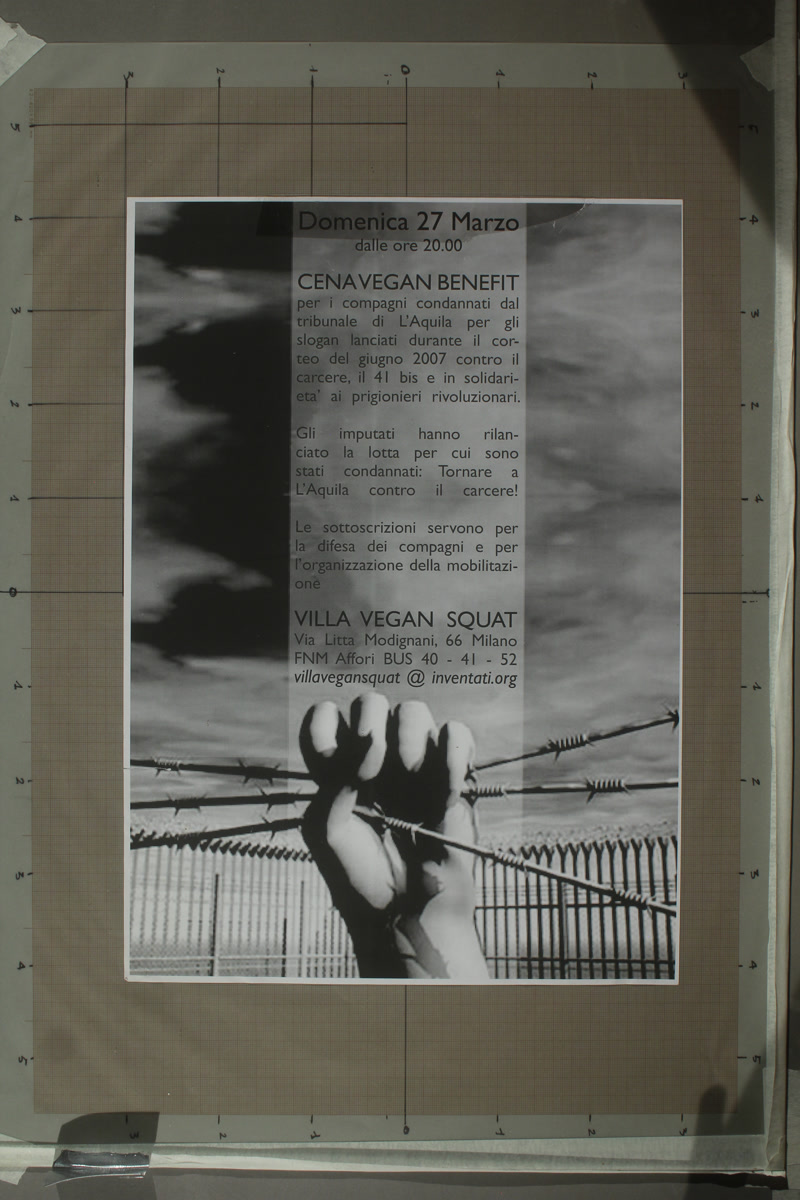 Domenica 27 Marzo
dalle ore 20.00
CENA VEGAN BENEFIT
per i compagni condannati dal
tribunale di L'Aquila per gli
slogan lanciati durante il cor-
teo del giugno 2007 contro il
carcere, il 41 bis e in solidari-
eta' ai prigionieri rivoluzionari.
Gli imputati hanno rilan-
ciato la lotta per cui sono
stati condannati: Tornare a
L'Aquila contro il carcere!
Le sottoscrizioni servono per
la difesa dei compagni e per
l'organizzazione della mobilitazi-
one
VILLA VEGAN SQUAT
Via Litta Modignani, 66 Milano
FNM Affori BUS 40 - 41 - 52
villavegansquat @ inventati.org